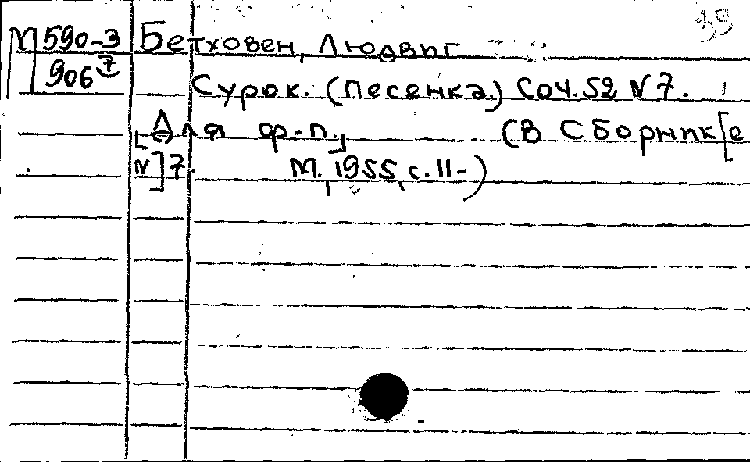 39
М 590-3 Бетховен, Людвиг
906 Сурок. (Песенка) Соч. 52 №7.
[Для ф-п.] (В сборник[е
№] 7. М., 1955, с. 11-)